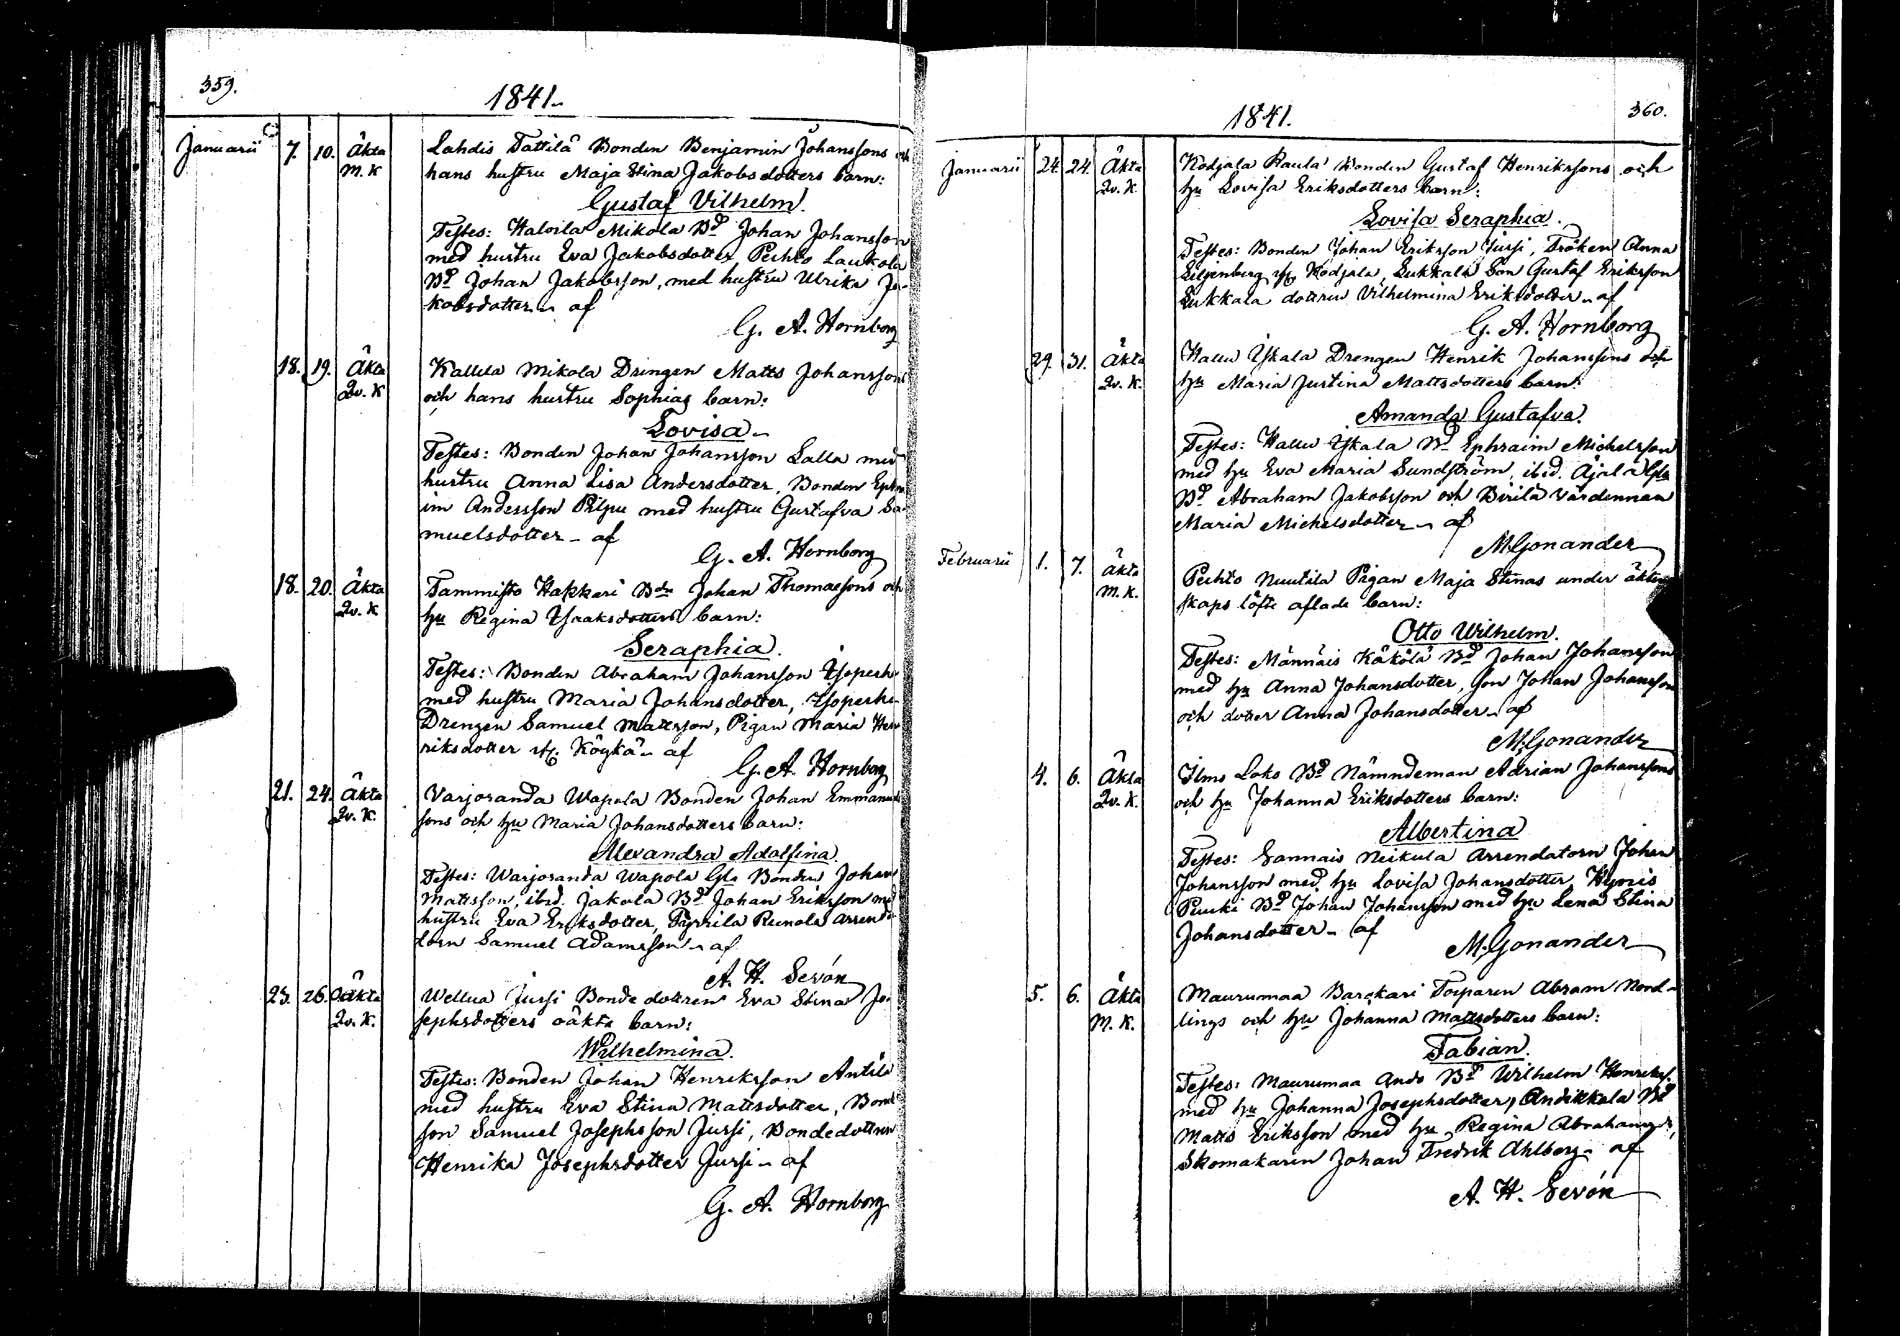 359.
1841.
Januarii 7. 10. Äkta Lahdis Tattila Bonden Benjamin Johanssons och
M. K hans hustru Maja Stina Jakobsdotters barn:
Gustaf Vilhelm.
Testes: Haloila Mikola Bd Johan Johansson
med hustru Eva Jakobsdotter, Peihto Laukola
Bd Johan Jakobsson, med hustru Ulrika Ja-
kobsdotter - af
G. A. Hornborg
18. 19. Äkta Kallela Mikola Drengen Matts Johanssons
Qv. K och hans hustru Sophias barn:
Lovisa -
Testes: Bonden Johan Johansson Lalla med
hustru Anna Lisa Andersdotter, Bonden Ephra
im Andersson Pilpu med hustru Gustafva Sa-
muelsdotter - af
G. A. Hornborg
18. 20. Äkta Tammisto Hakkari Bdn Johan Thomassons och
Qv. K hu Regina Isaaksdotters barn:
Seraphia.
Testes: Bonden Abraham Johansson Isoperhe
med hustru Maria Johansdotter, Isoperhe
Drengen Samuel Mattsson, Pigan Maria Hen
riksdotter Kögkä - af
G. A. Hornborg
21. 24. Äkta Varjoranda Wapola Bonden Johan Emmanuels
Qv. K. sons och hu Maria Johansdotters barn:
Alexandra Adolfina.
Testes: Warjoranda Wapola Gle Bonden Johan
Mattsson, ibid. Jakola Bd Johan Eriksson med
hustru Eva Eriksdotter, Reunola arrenda
torn Samuel Adamsson - af
A. H. Sevón
23. 26. Oäkta Wellua Jursi Bonde dottren Eva Stina Jo-
Qv. K. sephsdotters oäkta barn:
Wilhelmina.
Testes: Bonden Johan Henriksson Antila
med hustru Eva Stina Mattsdotter, Bond
son Samuel Josephsson Jursi, Bondedottren
Henrika Josephsdotter Jursi - af
G. A. Hornborg
360.
1841.
Januarii 24. 24. Äkta Kodjala Raula Bonden Gustaf Henrikssons och
Qv. K. hu Lovisa Eriksdotters barn:
Lovisa Seraphia.
Testes: Bonden Johan Eriksson Jursi, Fröken Anna
Liljenberg Kodjala, Lukkala Son Gustaf Eriksson
Lukkala dottren Vilhelmina Eriksdotter - af
G. A. Hornborg
29. 31. Äkta Hallu Yskala Drengen Henrik Johanssons och
Qv. K. hu Maria Justina Mattsdotters barn:
Amanda Gustafva.
Testes: Hallu Yskala Bd Ephraim Michelsson
med hu Eva Maria Sundström, ibid. Äjälä
Bd Abraham Jakobsson och Birilä värdinnan
Maria Michelsdotter - af
M. Gonander
Februarii 1. 7. Äkta Peihto Nuutila Pigan Maja Stinas under äkten
M. K. skaps löfte aflade barn:
Otto Wilhelm.
Testes: Männäis Käkölä Bd Johan Johansson
med hu Anna Johansdotter, son Johan Johansson
och dotter Anna Johansdotter - af
M. Gonander
4. 6. Äkta Ilmo Loko Bd Nämndeman Adrian Johanssons
Qv. K. och hu Johanna Eriksdotters barn:
Albertina
Testes: Sannais Neikula Arrendatorn Johan
Johansson med hu Lovisa Johansdotter,
Puuki Bd Johan Johansson med hu Lena Stina
Johansdotter - af
M. Gonander
5. 6. Äkta Maurumaa Barckari Torparen Abram Nord-
M. K. lings och hu Johanna Mattsdotters barn:
Fabian.
Testes: Maurumaa Ando Bd Wilhelm Henrikss.
med hu Johanna Josephsdotter, Andikkala Bd
Matts Eriksson med hu Regina Abrahamsdr,
Skomakaren Johan Fredrik Ahlberg - af
A. H. Sevón